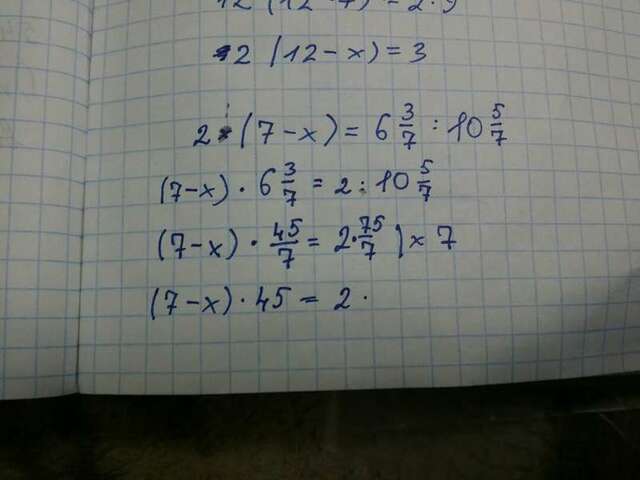 2 (12-x) = 3
2 : (7-x) = 6 3/7 : 10 5/7
(7-x) · 6 3/7 = 2 : 10 5/7
(7-x) · 45/7 = 2 · 75/7 | × 7
(7-x) · 45 = 2 ·